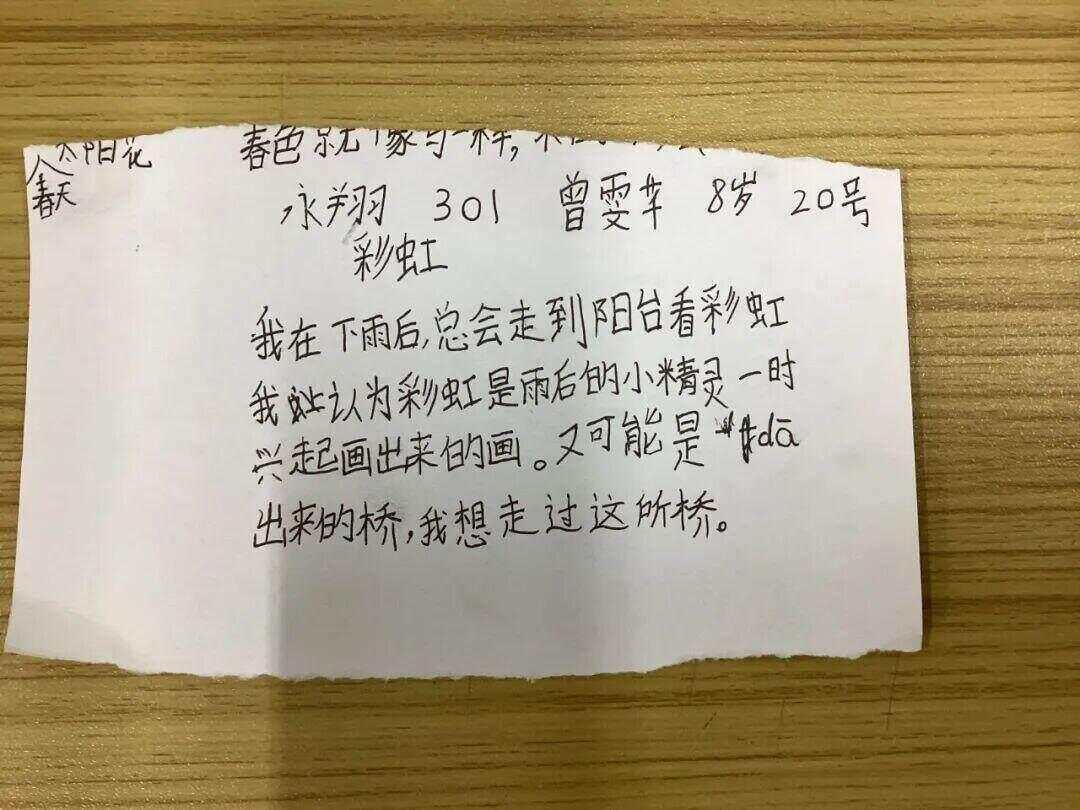 太阳花 春色就像与一样,
春天
永翔 301 曾雯芊 8岁 20号
彩虹
我在下雨后,总会走到阳台看彩虹
我认为彩虹是雨后的小精灵一时
兴起画出来的画。又可能是dā
出来的桥,我想走过这所桥。